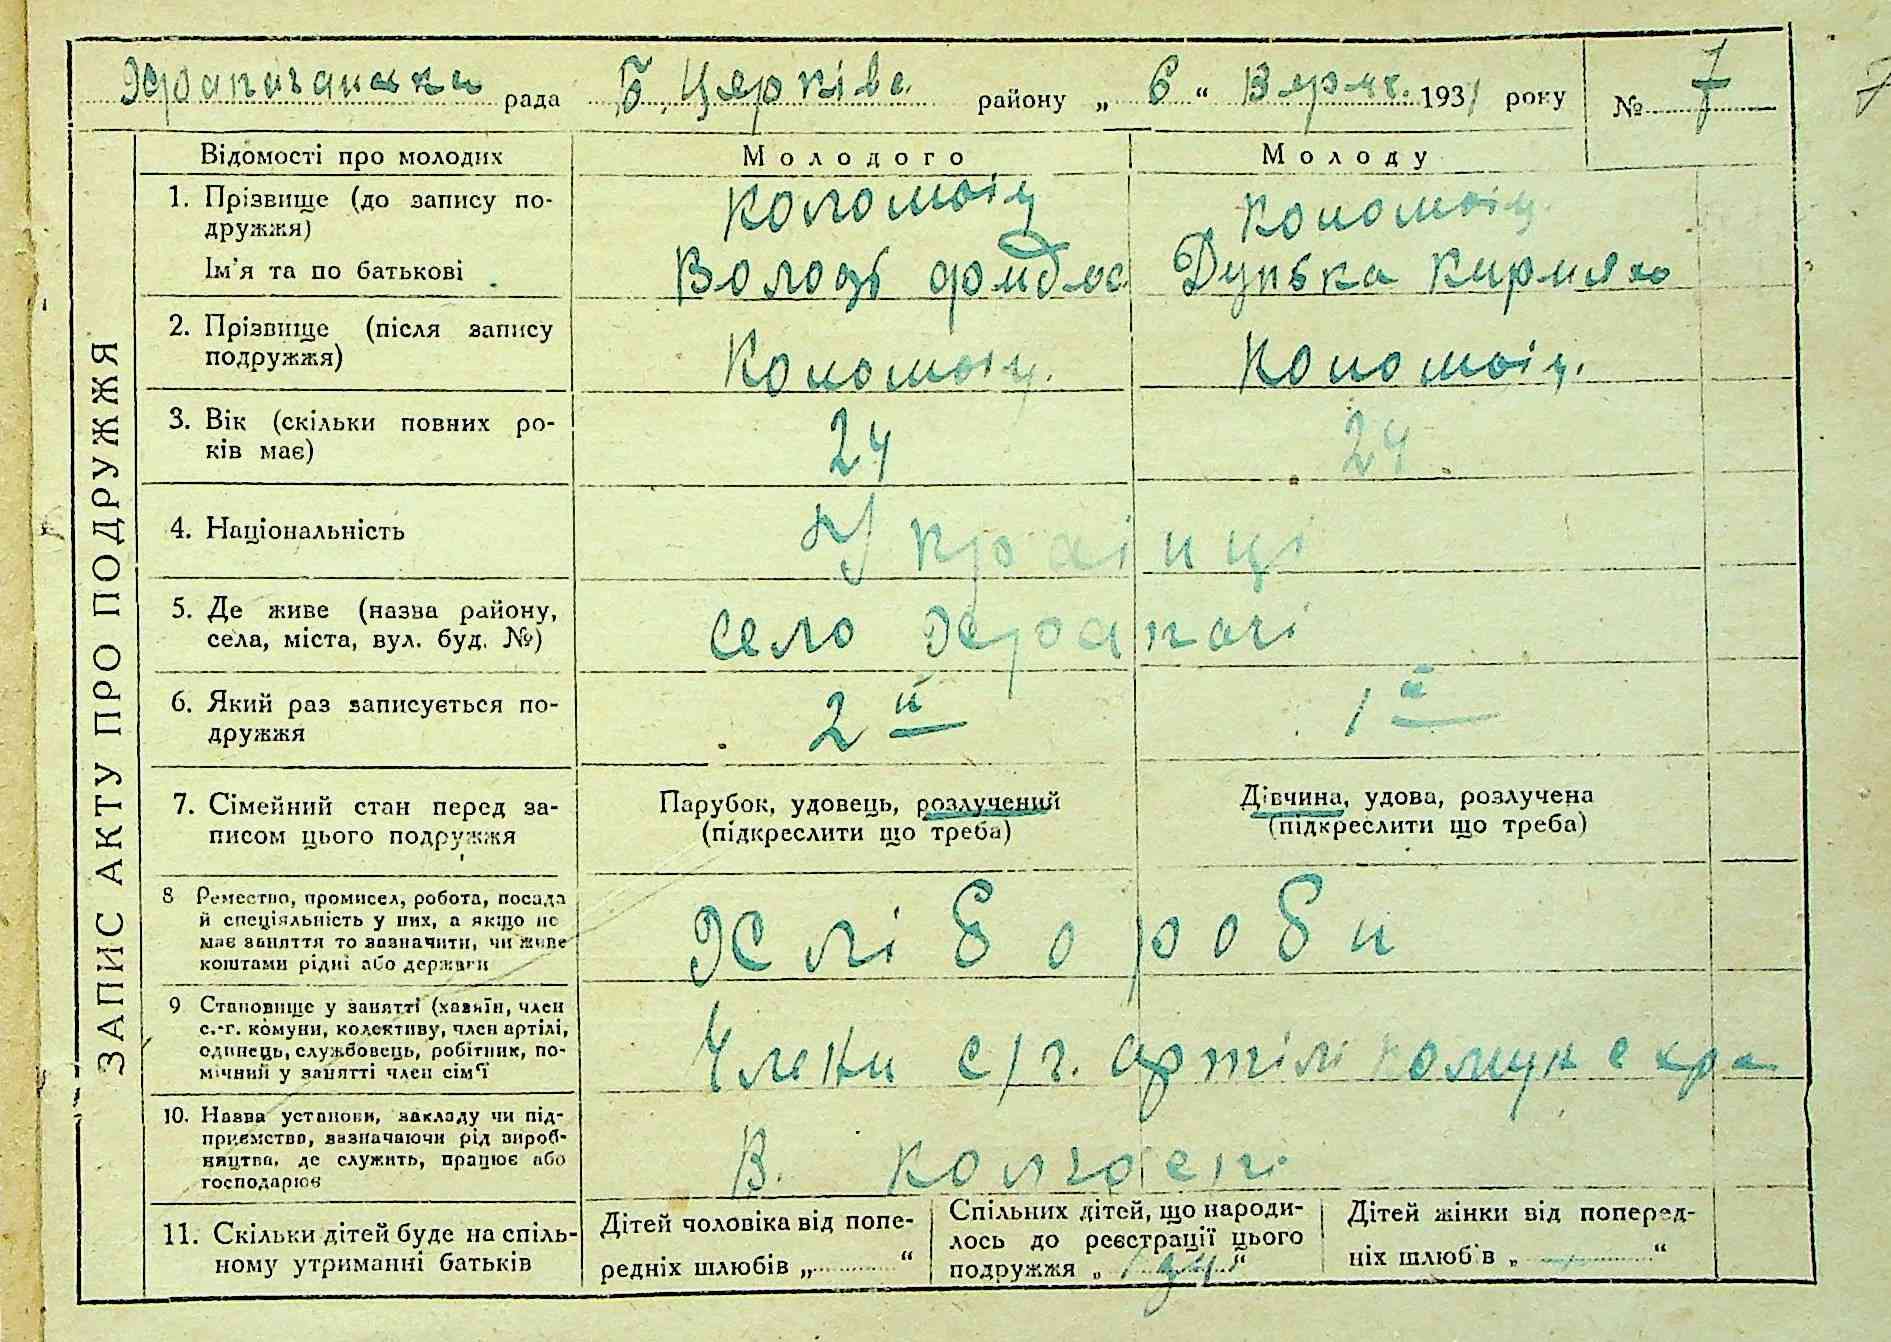 Храпачанська рада Б. Церківс. району „ 6 “ Верес. 1931 року № 7
7
ЗАПИС АКТУ ПРО ПОДРУЖЖЯ
Відомості про молодих Молодого Молоду
1. Прізвище (до запису по-
дружжя) Коломоіц Коломоіц.
Ім'я та по батькові Волод Дунька
2. Прізвище (після запису
подружжя) Коломоіц. Коломоіц.
3. Вік (скільки повних ро-
ків має) 24 24
4. Національність Українці
5. Де живе (назва району,
села, міста, вул. буд. №) село Храпачі
6. Який раз записується по-
дружжя 2 й 1 й
7. Сімейний стан перед за-
писом цього подружжя
Парубок, удовець, розлучений
(підкреслити що треба)
Дівчина, удова, розлучена
(підкреслити що треба)
8 Ремество, промисел, робота, посада
й спеціяльність у них, а якщо не
має заняття то зазначити, чи живе
коштами рідні або держави
Хлібороби
9 Становище у занятті (хазяїн, член
с.-г. комуни, колективу, член артілі,
одинець, службовець, робітник, по-
мічний у занятті член сім'ї
Члени с/г. артілі
10. Назва установи, закладу чи під-
приємства, зазначаючи рід вироб-
ництва, де служить, працює або
господарює
В. колгосп.
11. Скільки дітей буде на спіль-
ному утриманні батьків
Дітей чоловіка від попе-
редніх шлюбів „ “
Спільних дітей, що народи-
лось до реєстрації цього
подружжя „ “
Дітей жінки від поперед-
ніх шлюбів „ — “